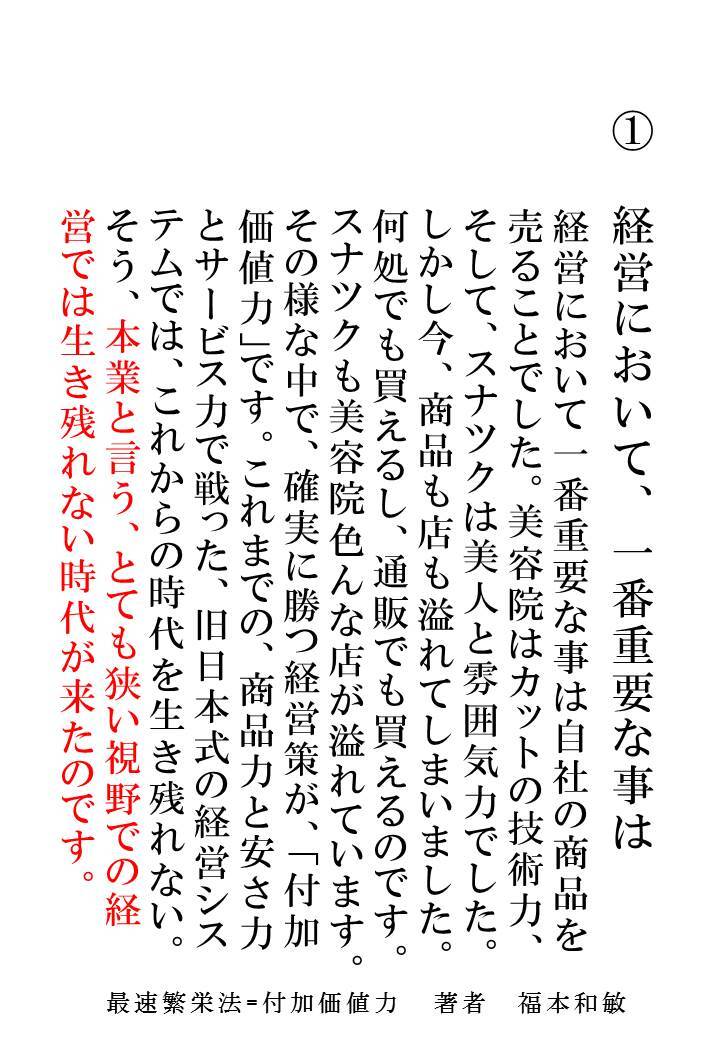 ①　経営において、一番重要な事は
経営において一番重要な事は自社の商品を
売ることでした。美容院はカットの技術力、
そして、スナツクは美人と雰囲気力でした。
しかし今、商品も店も溢れてしまいました。
何処でも買えるし、通販でも買えるのです。
スナツクも美容院色んな店が溢れています。
その様な中で、確実に勝つ経営策が、「付加
価値力」です。これまでの、商品力と安さ力
とサービス力で戦った、旧日本式の経営シス
テムでは、これからの時代を生き残れない。
そう、本業と言う、とても狭い視野での経
営では生き残れない時代が来たのです。
最速繁栄法=付加価値力　著者　福本和敏